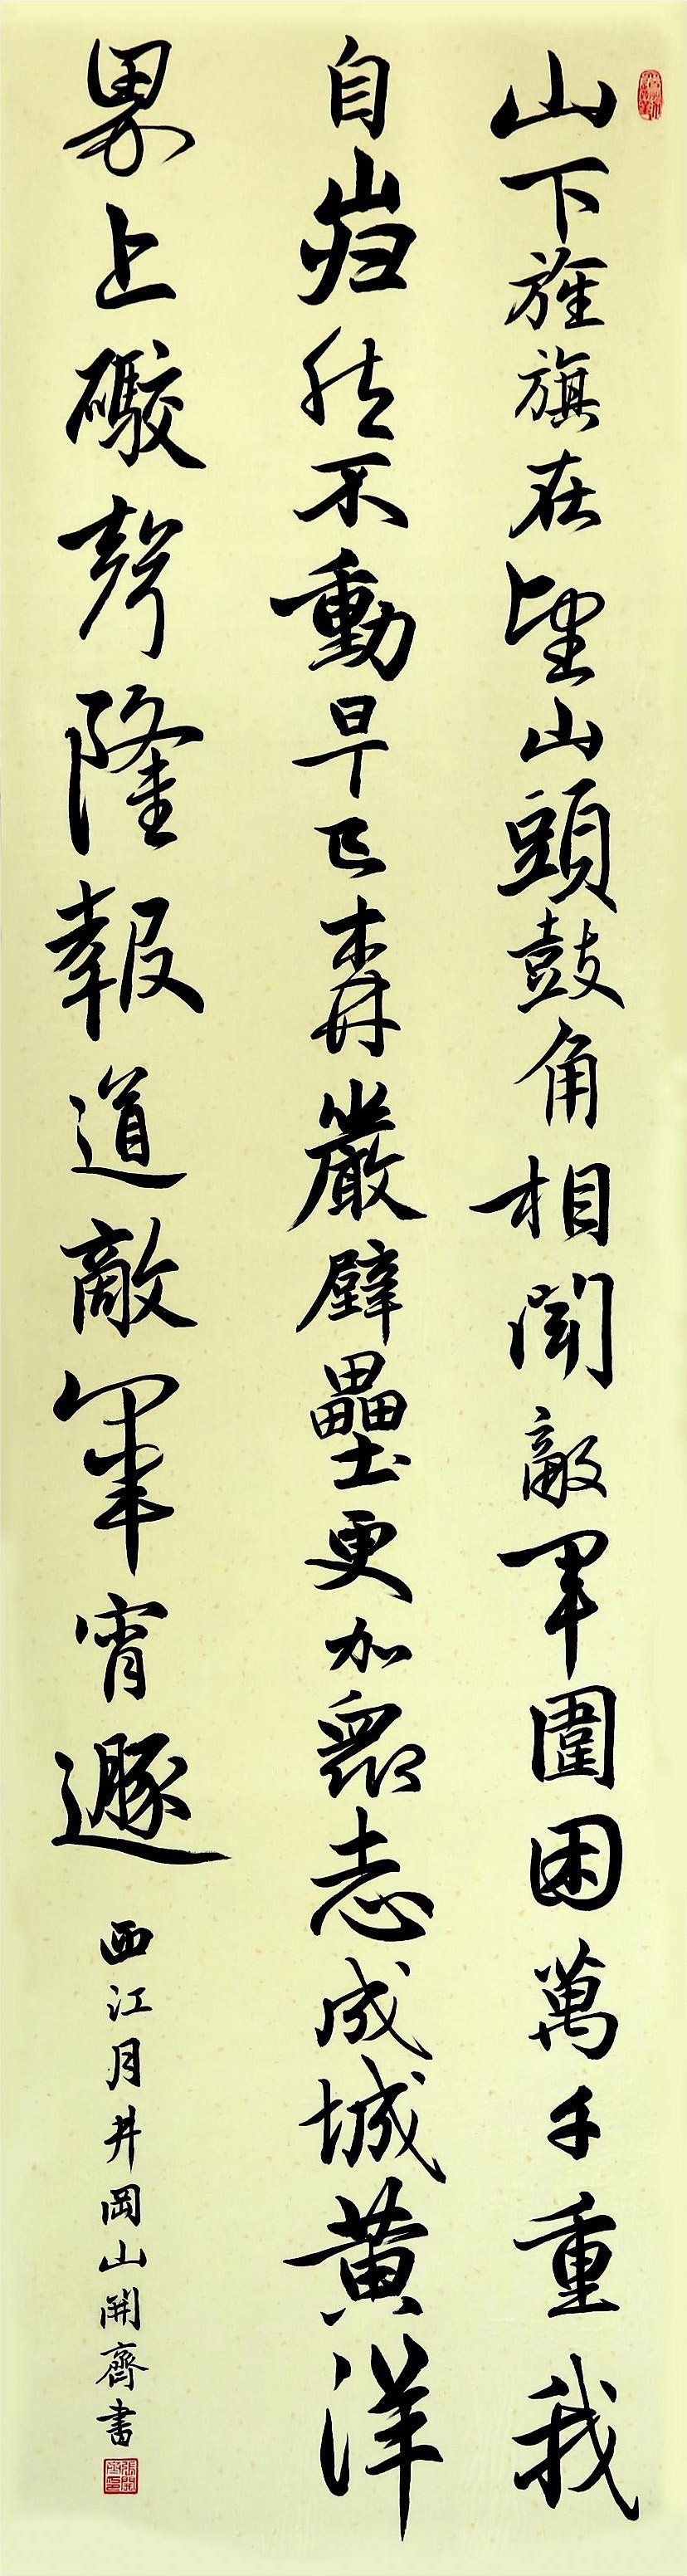 山下旌旗在望山頭鼓角相聞敵軍圍困萬千重我
自岿然不動早已森嚴壁壘更加眾志成城黃洋
界上礮聲隆報道敵軍宵遯
西江月井岡山開齊書